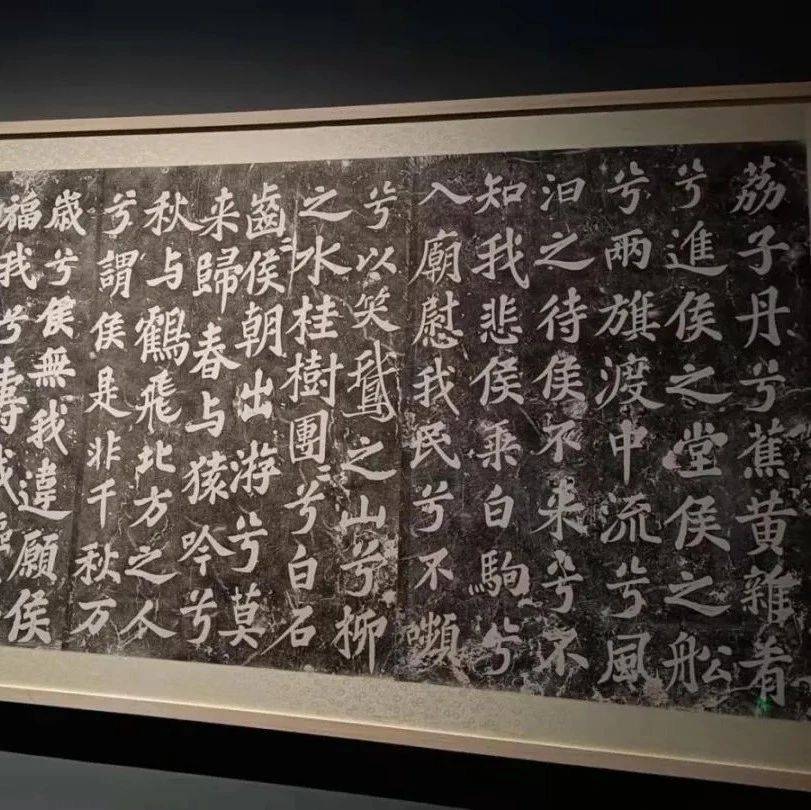 荔子丹兮蕉黄雜肴
兮進侯之堂侯之舩
兮兩旗渡中流兮風
汩之待侯不来兮不
知我悲侯乘白駒兮
入廟慰我民兮不嚬
兮以笑鵞之山兮柳
之水桂樹團〻兮白石
齒〻侯朝出游兮莫
来歸春与猿吟兮
秋与鶴飛北方之人
兮謂侯是非千秋万
歲兮侯無我違願侯
福我兮壽我